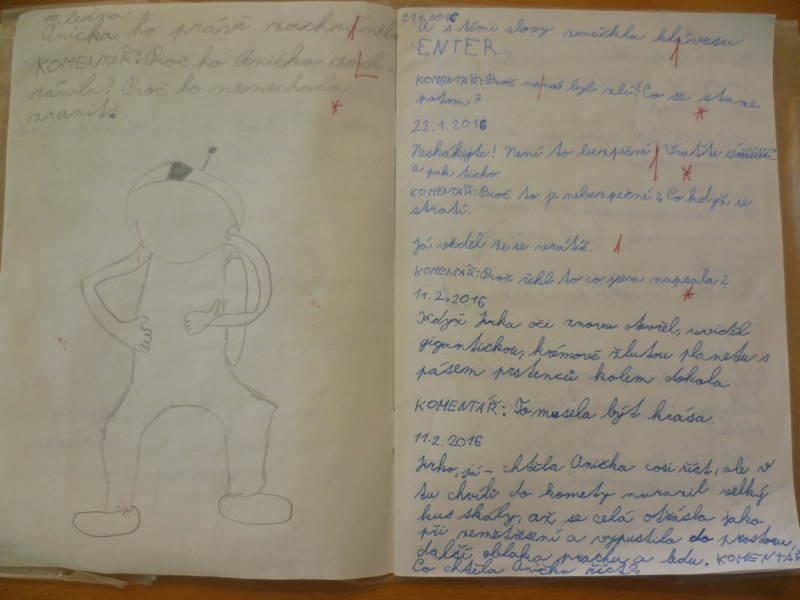 19. ledna
Anička ho právě zachránila
KOMENTÁŘ: Proč ho Anička zach-
ránila? Proč ho nenechala
zranit?
21.1.2016
A s těmi slovy zmáčkla klávesu
ENTER...
KOMENTÁŘ: Proč byl zlí? Co se stane
potom?
22.1.2016
Neskákejte! Není to bezpečné! Vraťte
a pak ticho.
KOMENTÁŘ: Proč to je nebezpečné? Co když se
stratí.
Já věděl že se vrátíš.
KOMENTÁŘ: Proč řekl to co jsem napsala?
11.2.2016
Když Jirka oči znovu otvořel, uviděl
gigantickou, krémově žlutou planetu s
pásem prstenců kolem dokola
KOMENTÁŘ: To musela být krása.
11.2.2016
Jirko, já - chtěla Anička cosi říct, ale v
tu chvíli do komety narazil velký
kus skály, až se celá otrásla jako
při zemětřesení a vypustila do prostoru,
další oblaka prachu a ledu. KOMENTÁŘ
Co chtěla Anička říct?